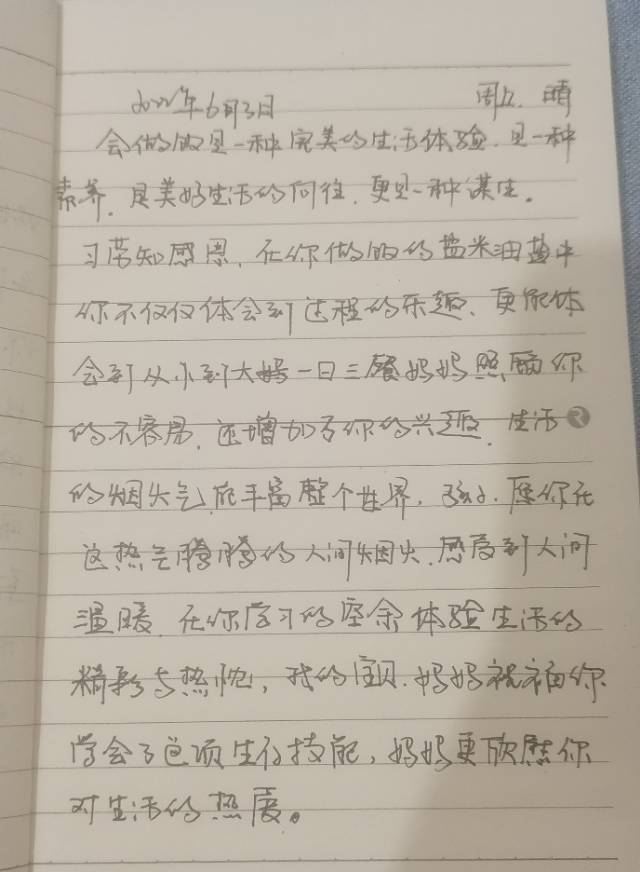 2022年6月3日 周五. 晴
会做饭是一种完美的生活体验. 是一种
素养. 是美好生活的向往. 更是一种谋生。
习劳知感恩. 在你做饭的盐米油盐中
你不仅仅体会到过程的乐趣. 更能体
会到从小到大妈一日三餐妈妈照顾你
的不容易. 还增加了你的兴趣. 生活
的烟火气. 能丰富整个世界. 孩子. 愿你在
这热气腾腾的人间烟火. 感受到人间
温暖. 在你学习的空余体验生活的
精彩与热忱, 我的宝贝. 妈妈祝福你
学会了这项生存技能, 妈妈更欣慰你
对生活的热度。